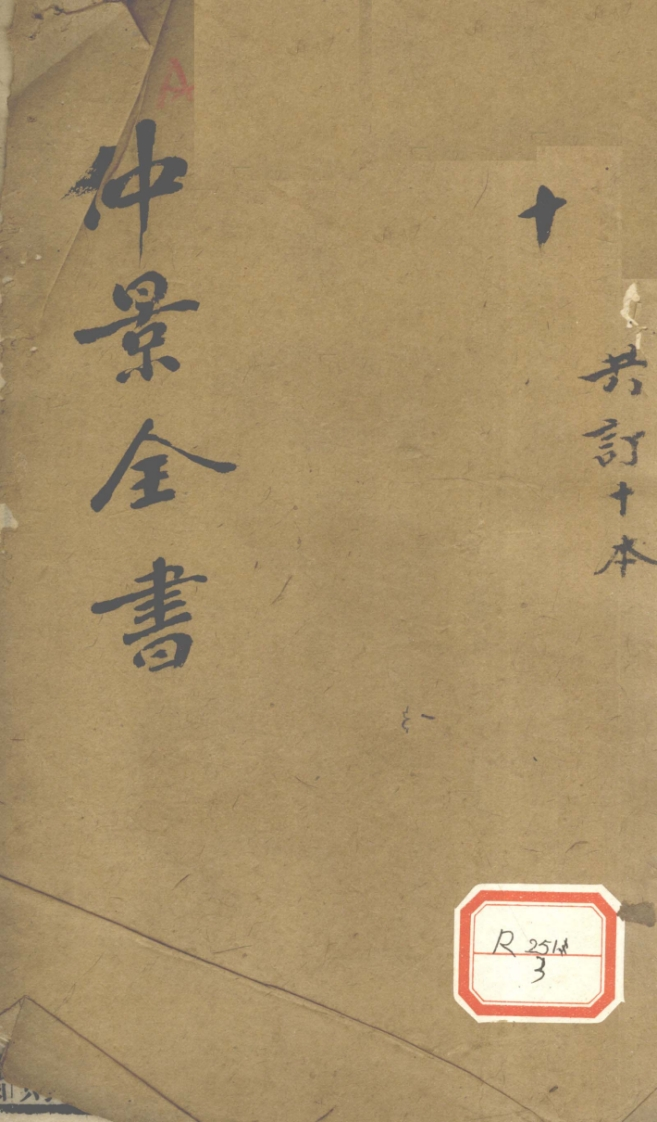 十
共訂十本
仲景全書
R 251
3